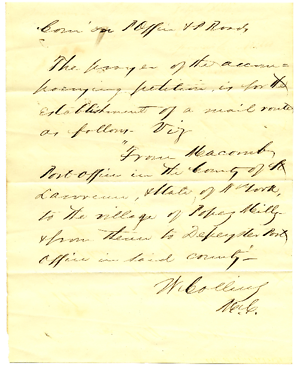 Com' on P Office & P Roads
The prayer of the accom-
panying petition is for the
establishment of a mail route
as follows - Viz
"From Macomb
Post Office in the County of St
Lawrence, & State of N York,
to the village of Popes Mills
& from thence to Depeyster Post
Office in said county"-
W. Collins
M.C.